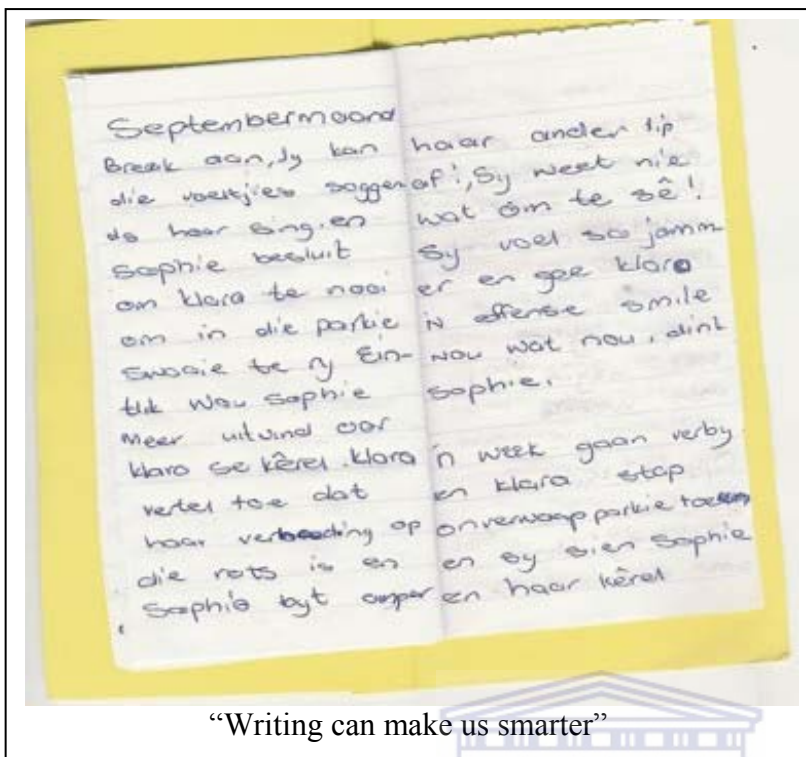 Septembermaand
Breek aan, Jy kan
die voeltjies soggen
do hoor sing. en
Sophie besluit
om klara te nooi
om in die parkie
swaaie te ry Ein-
tlik wou Sophie
Meer uitvind oor
klara se kêrel. klara
vertel toe dat
haar verbooding op
die rots is en
Sophie byt amper
haar ander lip
af!, Sy weet nie
wat om te sê!
Sy voel so jamm
er en gee klara
'n effense smile
Nou wat nou, dink
Sophie.
'n week gaan verby
en klara stap
onverwags parkie toe
en sy sien Sophie
en haar kêrel
“Writing can make us smarter”